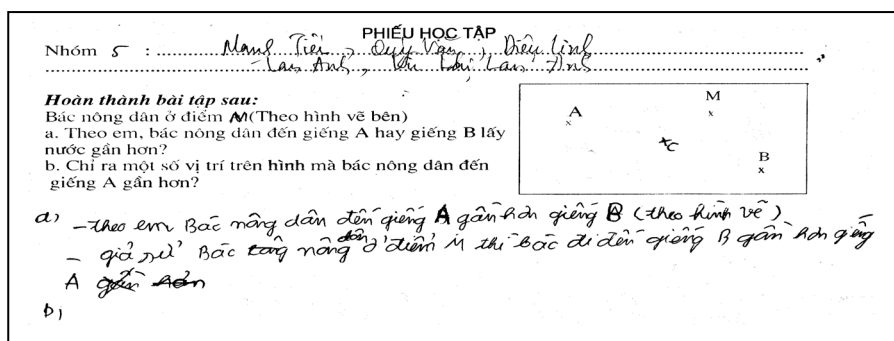 PHIẾU HỌC TẬP
Nhóm 5 : Quý Vân, Diệu Linh
Lan Anh, Lan Anh
Hoàn thành bài tập sau:
Bác nông dân ở điểm M(Theo hình vẽ bên)
a. Theo em, bác nông dân đến giếng A hay giếng B lấy
nước gần hơn?
b. Chỉ ra một số vị trí trên hình mà bác nông dân đến
giếng A gần hơn?
A
M
C
B
a) - theo em Bác nông dân đến giếng A gần hơn giếng B (theo hình vẽ)
- giả sử Bác nông dân ở điểm M thì bác đi đến giếng B gần hơn giếng
A gần hơn
b)